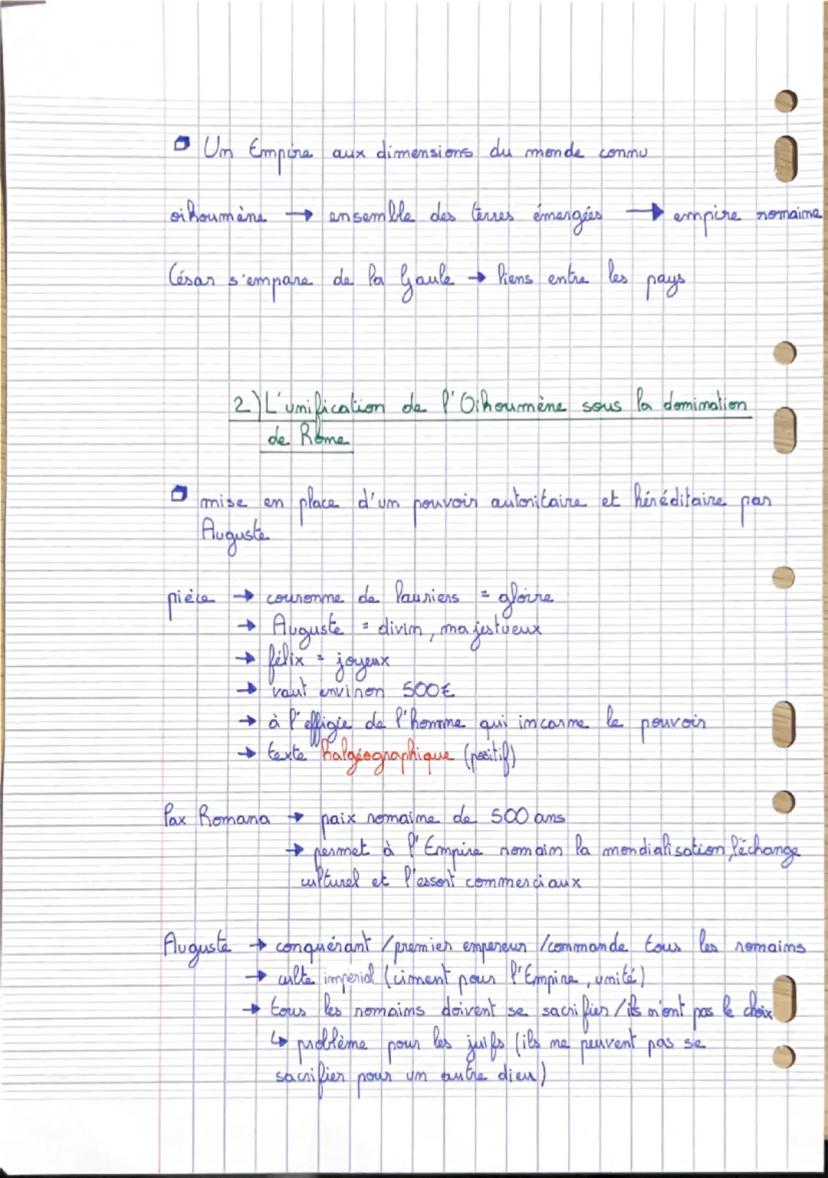 Un Empire aux dimensions du monde connu
oikoumène → ensemble des terres émergées → empire romaine
César s'empare de la Gaule → liens entre les pays
2) L'unification de l'Oikoumène sous la domination
de Rome
mise en place d'un pouvoir autoritaire et héréditaire par
Auguste
pièce → couronne de lauriers = gloire
→ Auguste = divin, majestueux
→ félix = joyeux
→ vaut environ 500€
→ à l'effigie de l'homme qui incarne le pouvoir
→ texte halgéographique (positif)
Pax Romana → paix romaine de 500 ans
→ permet à l'Empire romain la mondialisation, l'échange
culturel et l'essort commerciaux
Auguste → conquérant / premier empereur / commande tous les romains
→ culte imperial (ciment pour l'Empire, unité)
→ tous les romains doivent se sacrifier / ils n'ont pas le choix
↳ problème pour les juifs (ils ne peuvent pas se
sacrifier pour un autre dieu)